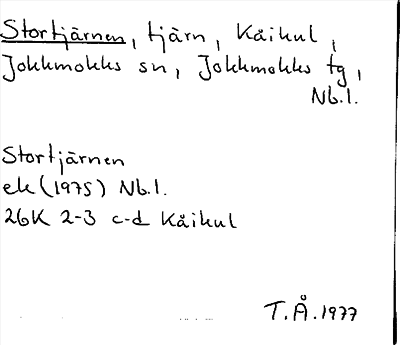 Stortjärnen, tjärn, Kåikul,
Jokkmokks sn, Jokkmokks tg,
Nb.l.
Stortjärnen
ek (1975) Nb.l.
26K 2-3 c-d Kåikul
T.Å. 1977